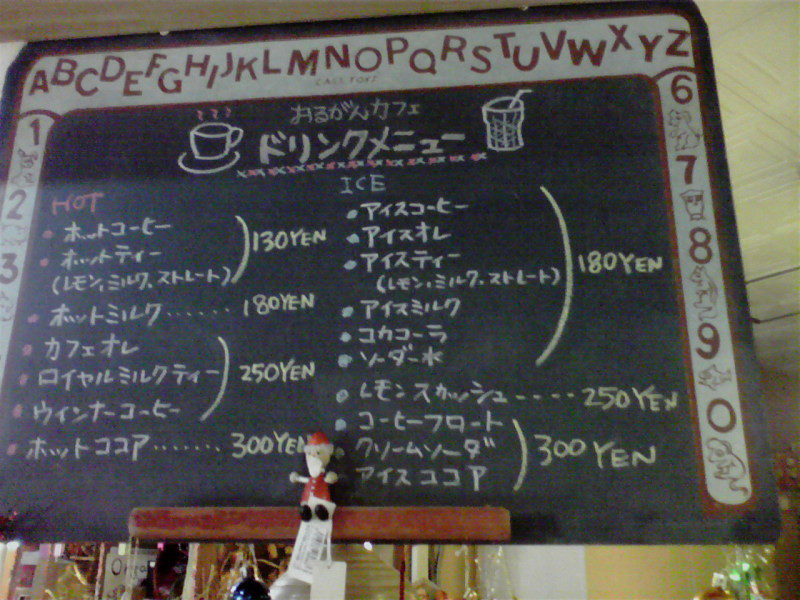 ABCDEFGHIJKLMNOPQRSTUVWXYZ
1
2
3
6
7
8
9
0
おるがんカフェ
ドリンクメニュー
HOT
ホットコーヒー
ホットティー
(レモン、ミルク、ストレート)
130YEN
ホットミルク‥‥‥ 180YEN
カフェオレ
ロイヤルミルクティー
ウインナーコーヒー
250YEN
ホットココア‥‥‥‥ 300YEN
ICE
アイスコーヒー
アイスオレ
アイスティー
(レモン、ミルク、ストレート)
アイスミルク
コカコーラ
ソーダー水
180YEN
レモンスカッシュ----- 250YEN
コーヒーフロート
クリームソーダ
アイスココア
300YEN